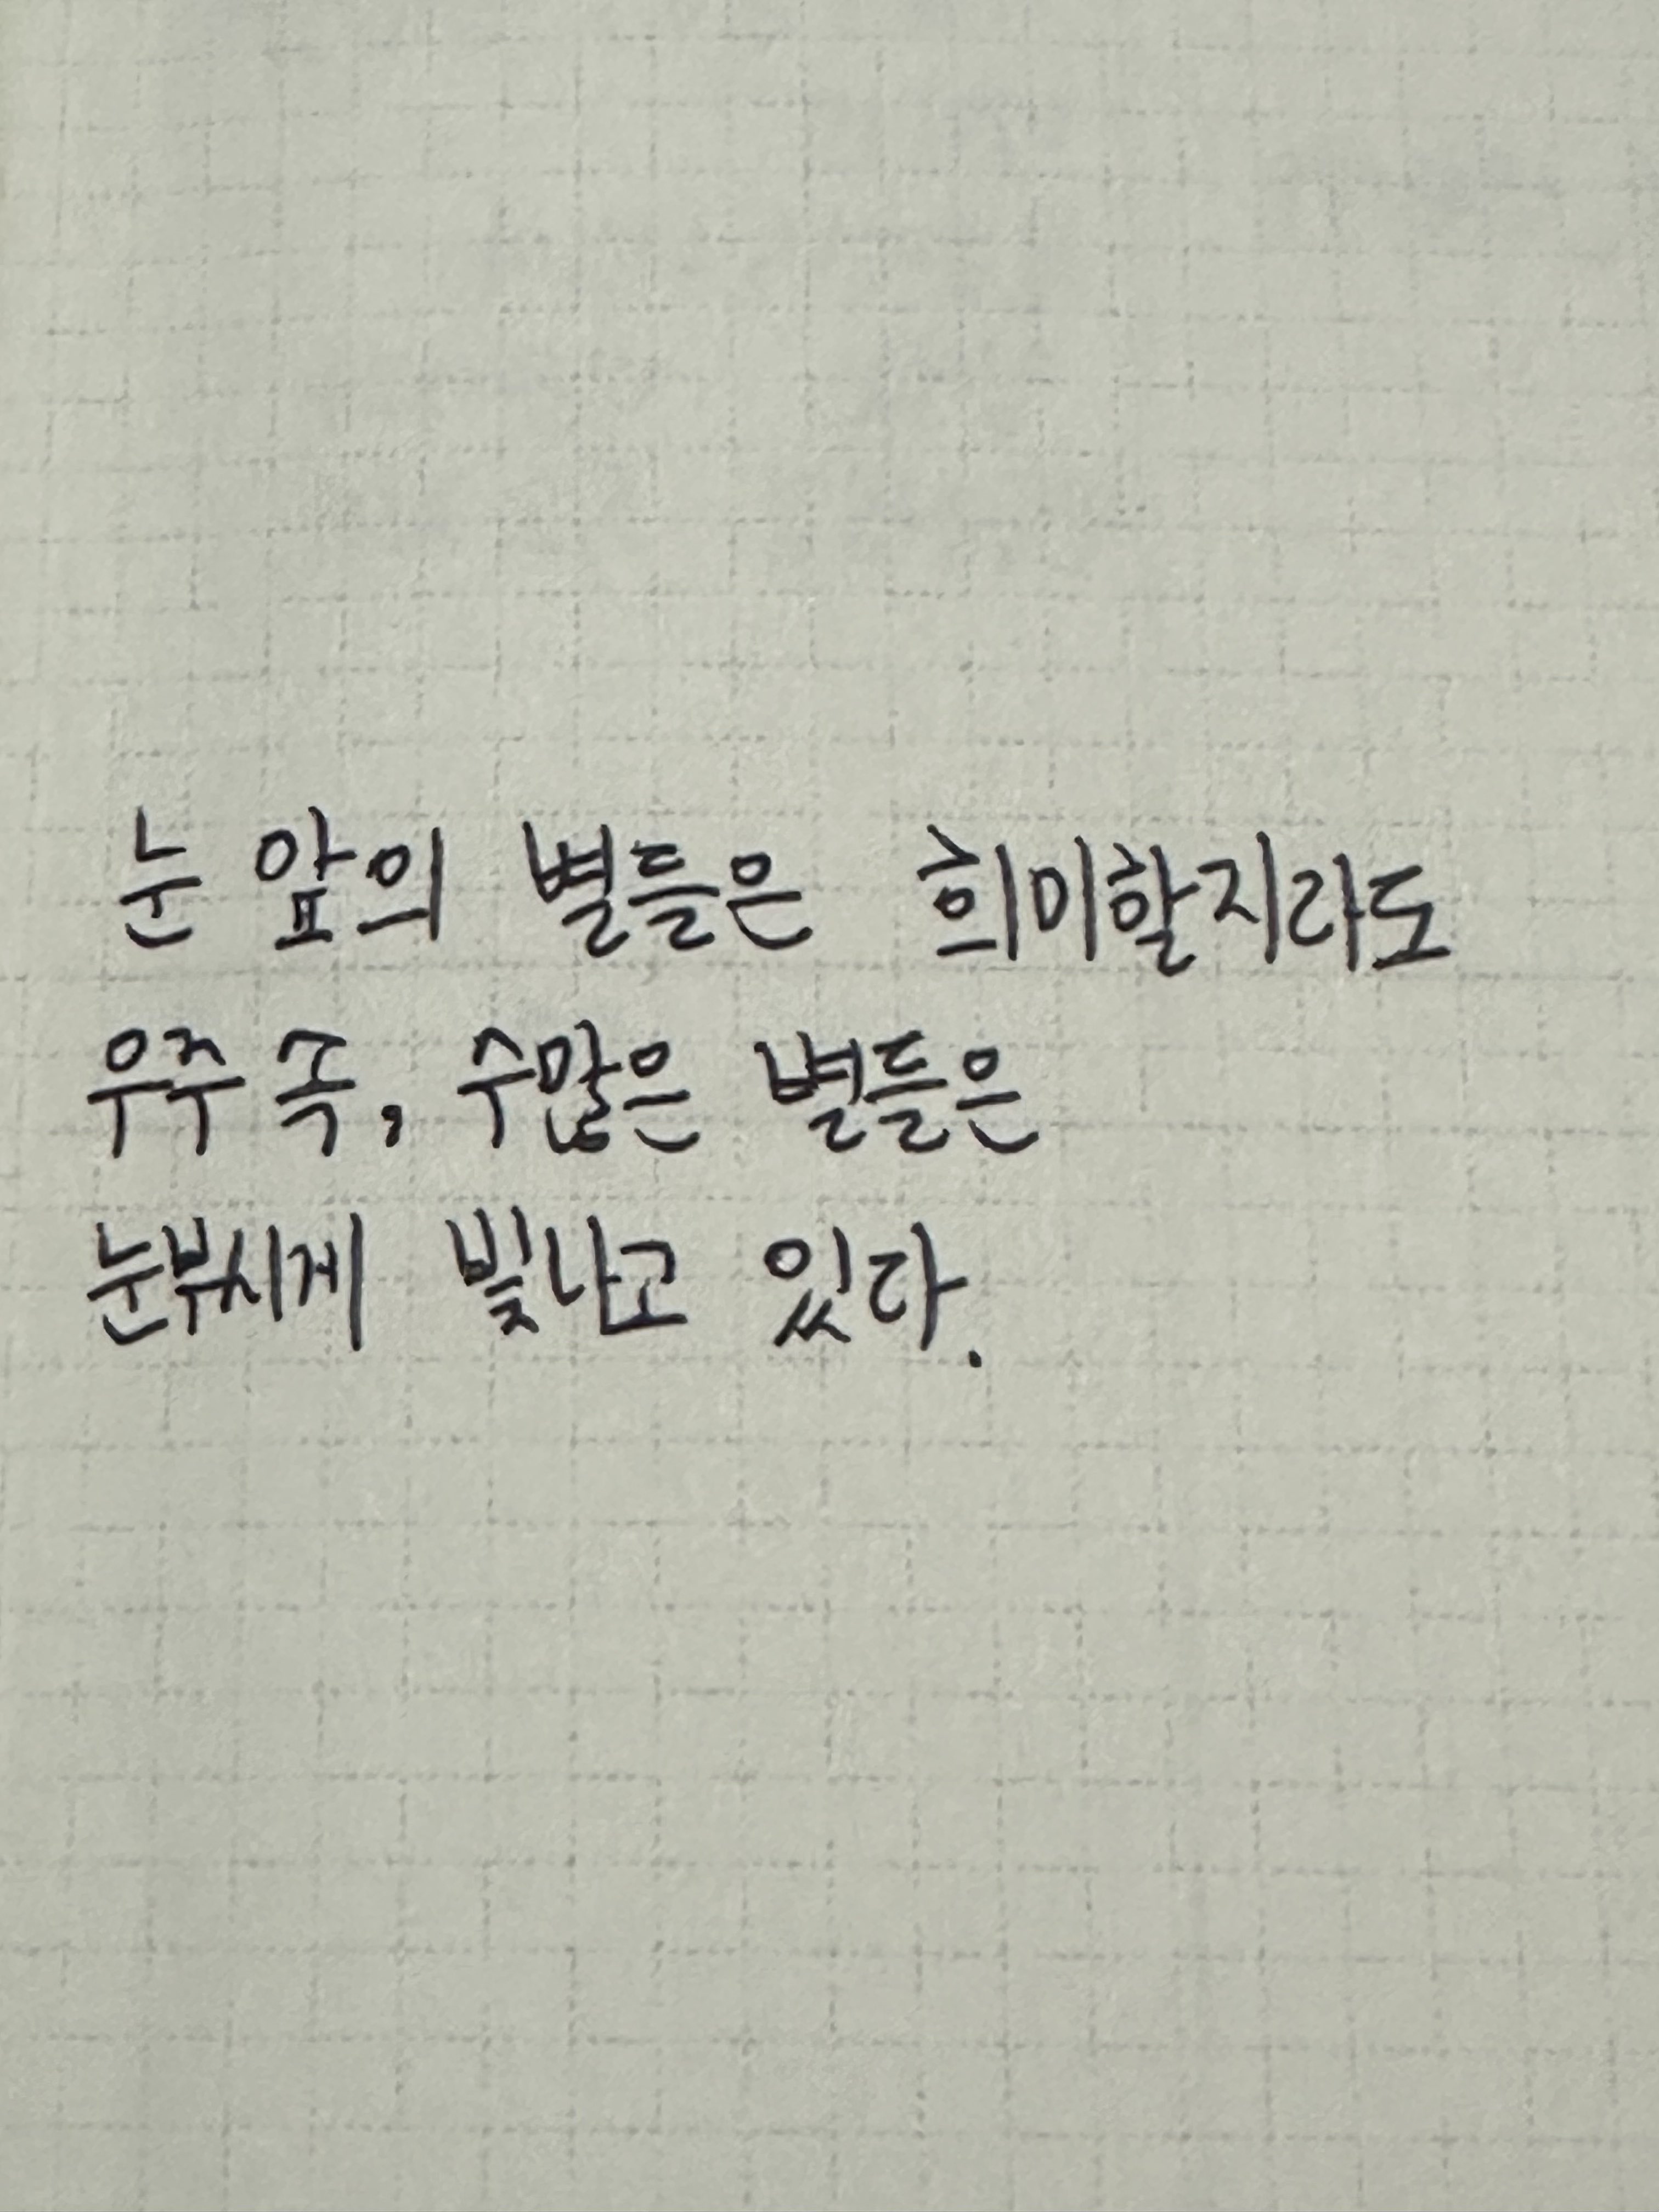 눈 앞의 별들은 희미할지라도
우주 속, 수많은 별들은
눈부시게 빛나고 있다.